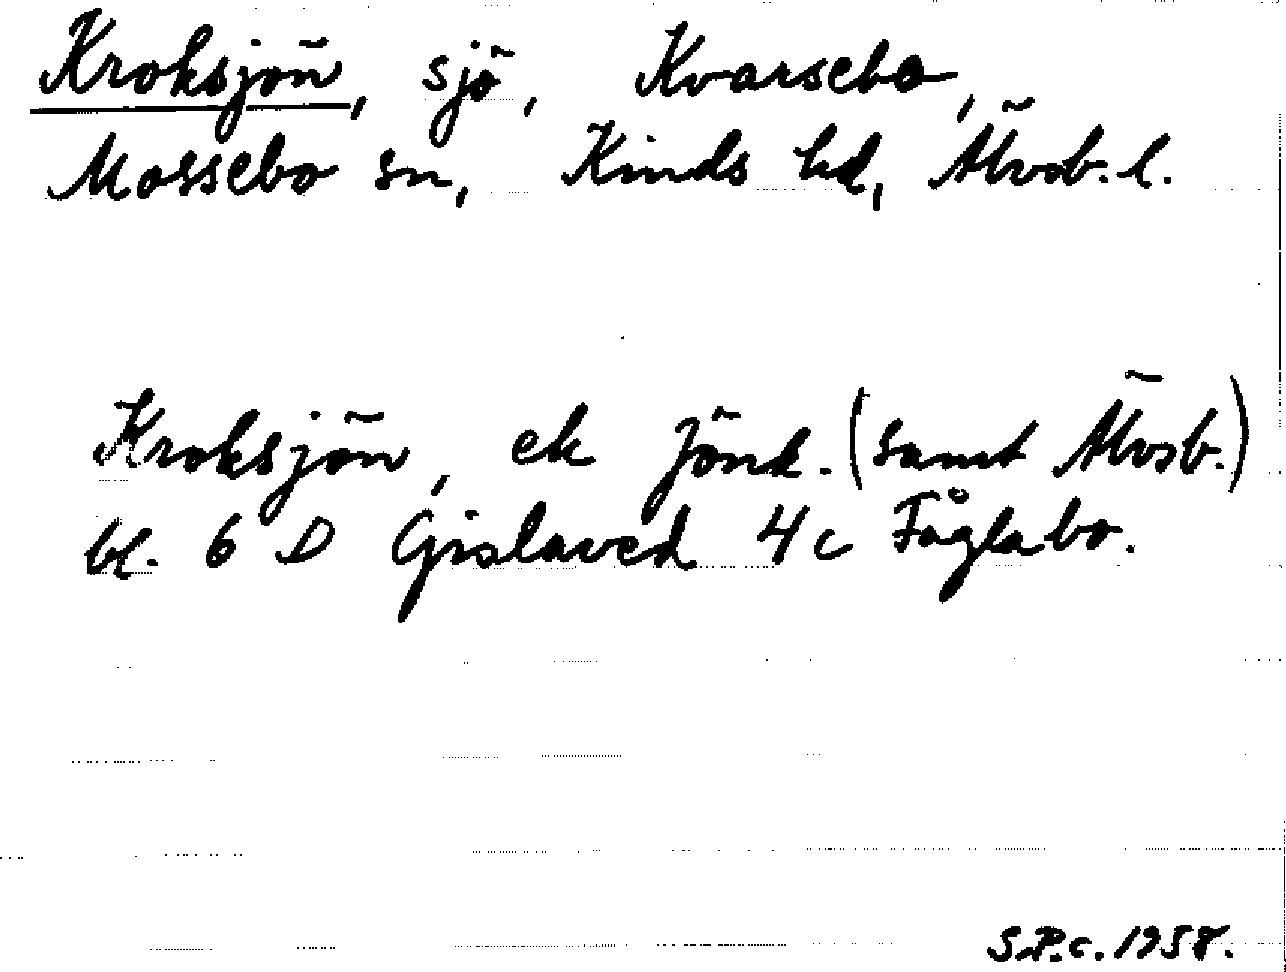 Kroksjön, sjö, Kvarsebo,
Mossebo sn, Kinds hd, Älvsb. l.
Kroksjön, ek Jönk. (samt Älvsb.)
bl. 6 D Gislaved 4 c Fåglabo.
S.P.c. 1958.